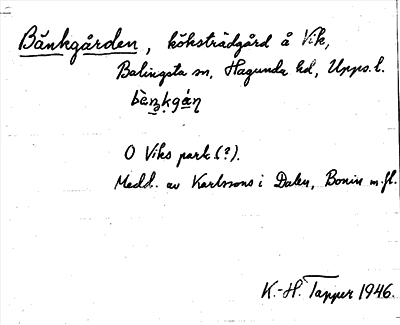 Bänkgården, köksträdgård å Vik,
Balingsta sn, Hagunda hd, Upps. l.
O Viks park (?).
Medd. av Karlssons i Dalen, Bonin m. fl.
K.-H. Tapper 1946.